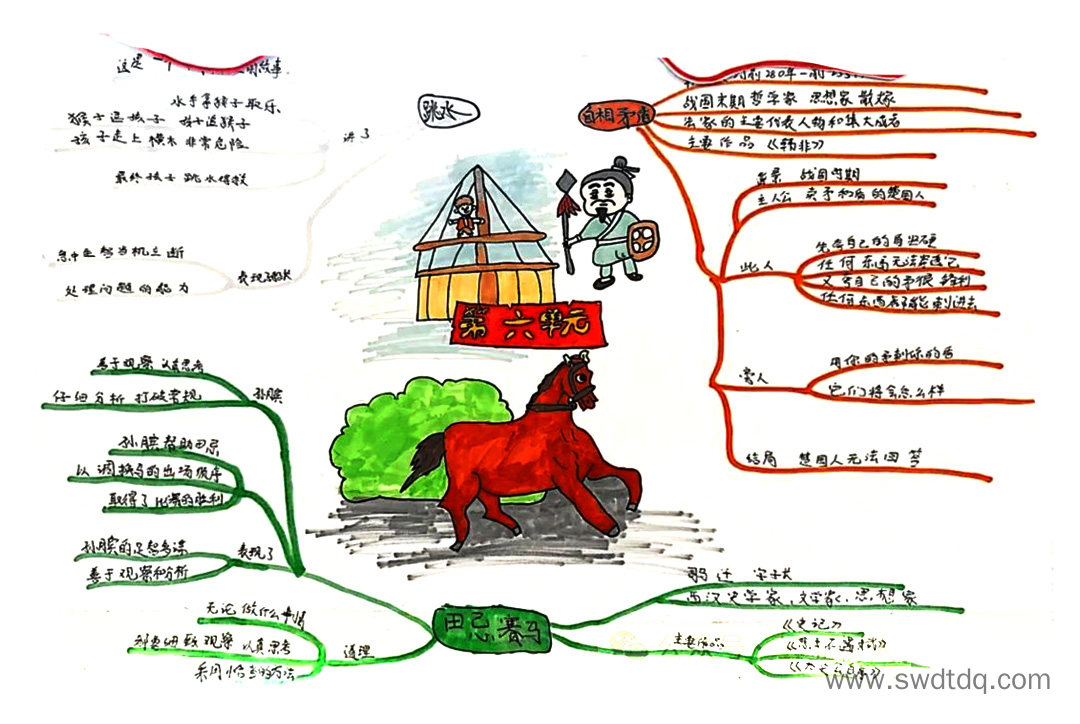 跳水
这是一个
故事
水手拿猴子取乐
猴子逗孩子 孩子追猴子
孩子走上横木 非常危险
最终孩子 跳水得救
讲了
当机立断
处理问题的能力
表现了船长
自相矛盾
战国末期哲学家 思想家 散文家
法家的主要代表人物和集大成者
主要作品 《韩非》
背景 战国时期
主人公 卖矛和盾的楚国人
此人
先夸自己的盾坚硬
任何东西无法穿透它
又夸自己的矛很锋利
任何东西都能刺进去
旁人
用你的矛刺你的盾
它们将会怎么样
结局 楚国人无法回答
第六单元
田忌赛马
孙膑
善于观察 认真思考
仔细分析 打破常规
孙膑帮助田忌
以调换马的出场顺序
取得了比赛的胜利
表现了
孙膑的足智多谋
善于观察和分析
道理
无论做什么事情
都要细致观察 认真思考
采用恰当的方法
司马迁 字子长
西汉史学家、文学家、思想家
主要作品
《史记》
《悲士不遇赋》
www.swdtdq.com